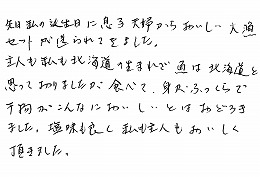 先日私の誕生日に息子夫婦からおいしい干魚
セットが送られてきました。
主人も私も北海道の生まれで魚は北海道と
思って おりましたが食べて、身がふっくらで
干物がこんなにおいしいとはおどろき
ました。塩味も良く私も主人もおいしく
頂きました。